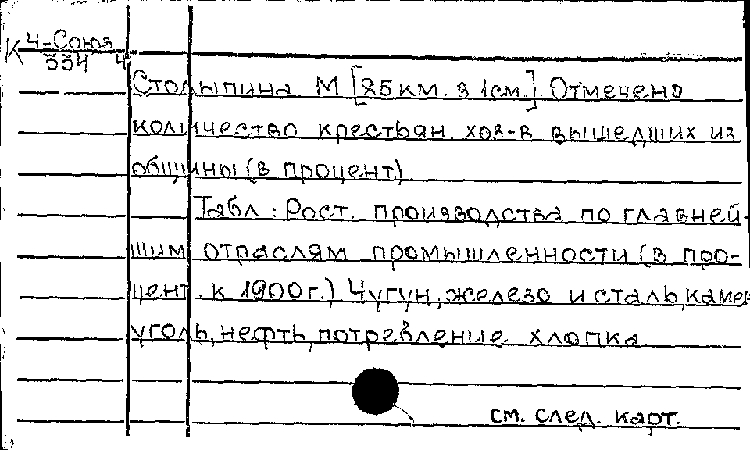 К 4-Союз
334 4
Столыпина М [25 км. в 1 см.] Отмечено
количество крестьян. хоз-в вышедших из
общины (в процент)
Табл: Рост. производства по главней-
шим отраслям промышленности (в про-
цент. к 1900 г.) Чугун, железо и сталь, камен
уголь, нефть, потребление хлопка
см. след. карт.